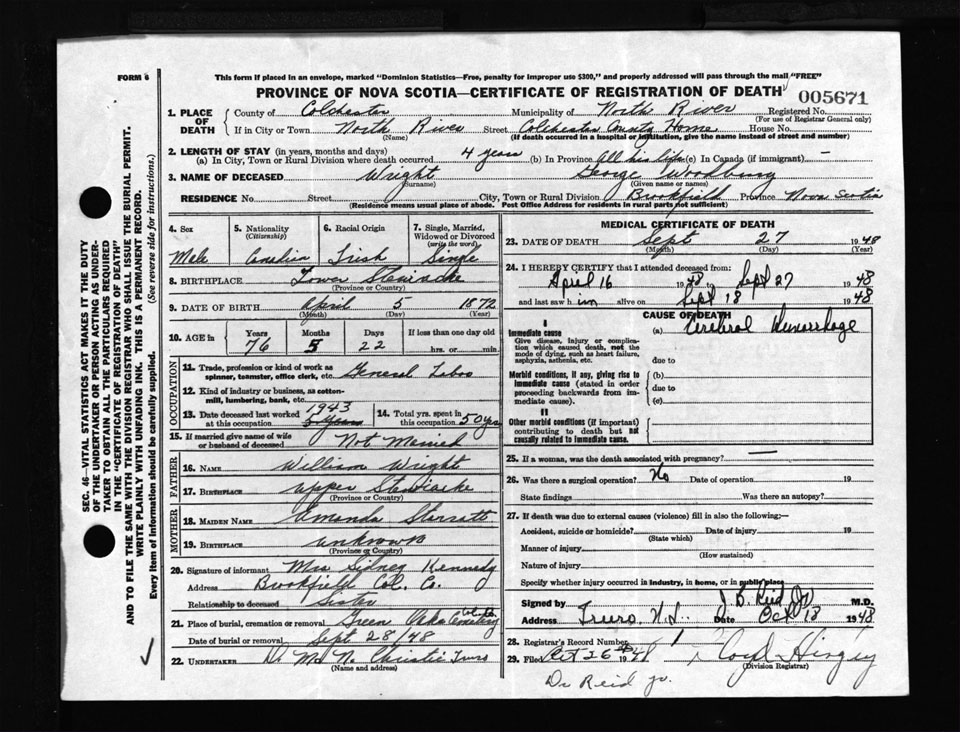 FORM 6
This form if placed in an envelope, marked "Dominion Statistics—Free, penalty for improper use $300," and properly addressed will pass through the mail "FREE"
PROVINCE OF NOVA SCOTIA—CERTIFICATE OF REGISTRATION OF DEATH
005671
1. PLACE OF DEATH County of Colchester Municipality of North River Registered No.
(For use of Registrar General only)
If in City or Town North River Street Colchester County Home House No.
(Name) (If death occurred in a hospital or institution, give the name instead of street and number)
2. LENGTH OF STAY (in years, months and days)
(a) In City, Town or Rural Division where death occurred 4 years (b) In Province All his life (c) In Canada (if immigrant) —
3. NAME OF DECEASED Wright George Woodbury
(Surname) (Given name or names)
RESIDENCE No. Street City, Town or Rural Division Brookfield Province Nova Scotia
(Residence means usual place of abode. Post Office Address for residents in rural parts not sufficient)
4. Sex 5. Nationality (Citizenship) 6. Racial Origin 7. Single, Married, Widowed or Divorced (write the word)
Male Canadian Irish Single
8. BIRTHPLACE Lower Stewiacke
(Province or Country)
9. DATE OF BIRTH April 5 1872
(Month) (Day) (Year)
10. AGE in Years Months Days If less than one day old
76 5 22 hrs. or min.
OCCUPATION
11. Trade, profession or kind of work as spinner, teamster, office clerk, etc. General Labor
12. Kind of industry or business, as cotton-mill, lumbering, bank, etc.
13. Date deceased last worked at this occupation 1943
14. Total yrs. spent in this occupation 50 yrs
15. If married give name of wife or husband of deceased Not Married
FATHER
16. NAME William Wright
17. BIRTHPLACE Upper Stewiacke
(Province or Country)
MOTHER
18. MAIDEN NAME Amanda Starratt
19. BIRTHPLACE unknown
(Province or Country)
20. Signature of informant Mrs Sidney Kennedy
Address Brookfield Col. Co.
Relationship to deceased Sister
21. Place of burial, cremation or removal Green Oaks Cemetery Col. Co.
Date of burial or removal Sept 28/48
22. UNDERTAKER N. Christie Truro
(Name and address)
MEDICAL CERTIFICATE OF DEATH
23. DATE OF DEATH Sept 27 1948
(Month) (Day) (Year)
24. I HEREBY CERTIFY that I attended deceased from:
April 16 1948 to Sept 27 1948
and last saw him alive on Sept 18 1948
CAUSE OF DEATH
I
Immediate cause (a) Cerebral Hemorrhage
Give disease, injury or complication which caused death, not the mode of dying, such as heart failure, asphyxia, asthenia, etc.
due to
Morbid conditions, if any, giving rise to immediate cause (stated in order proceeding backwards from immediate cause).
(b)
due to
(c)
II
Other morbid conditions (if important) contributing to death but not causally related to immediate cause.
25. If a woman, was the death associated with pregnancy? —
26. Was there a surgical operation? No Date of operation 19
State findings Was there an autopsy?
27. If death was due to external causes (violence) fill in also the following:—
Accident, suicide or homicide? Date of injury 19
(State which)
Manner of injury
(How sustained)
Nature of injury
Specify whether injury occurred in industry, in home, or in public place
Signed by J. B. Reid Jr M.D.
Address Truro, N.S. Date Oct 18 1948
28. Registrar's Record Number 1
29. Filed Oct 26 1948 Lloyd Hingley
(Division Registrar)
Dr Reid Jr.
SEC. 46—VITAL STATISTICS ACT MAKES IT THE DUTY
OF THE UNDERTAKER OR PERSON ACTING AS UNDER-
TAKER TO OBTAIN ALL THE PARTICULARS REQUIRED
IN THE "CERTIFICATE OF REGISTRATION OF DEATH"
AND TO FILE THE SAME WITH THE DIVISION REGISTRAR WHO SHALL ISSUE THE BURIAL PERMIT.
WRITE PLAINLY WITH UNFADING INK. THIS IS A PERMANENT RECORD.
Every item of information should be carefully supplied. (See reverse side for instructions.)